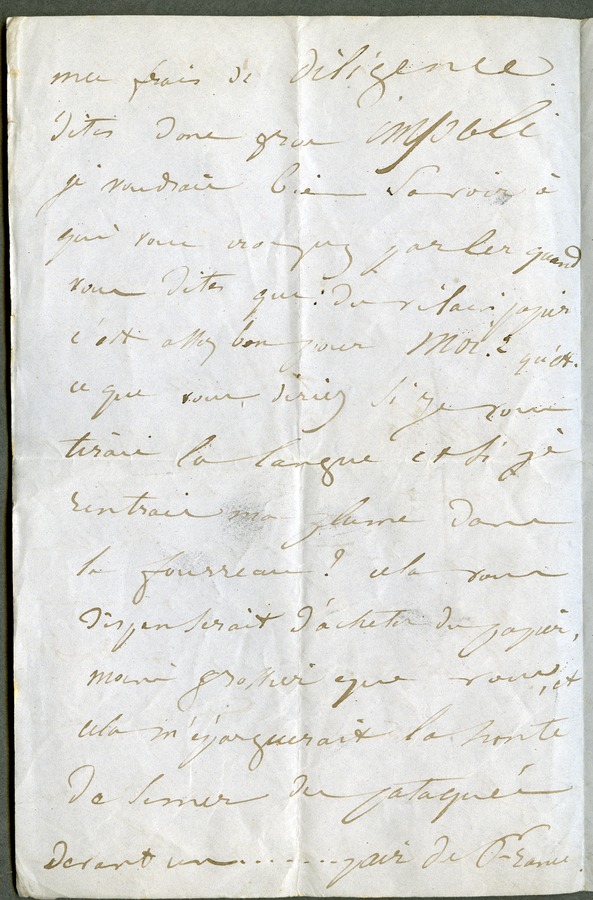 mes frais de diligence.
dites donc gros impoli
je voudrais bien savoir à
qui vous croyez parler quand
vous dites que: du vilain papier
c'est assez bon pour moi? qu'est-
ce que vous diriez si je vous
tirais la langue et si je
rentrais ma plume dans
le fourreau? cela vous
dispenserait d'acheter du papier,
moins grossier que vous, et
cela m'épargnerait la honte
de semer des pataquès
devant un ....... pair de France